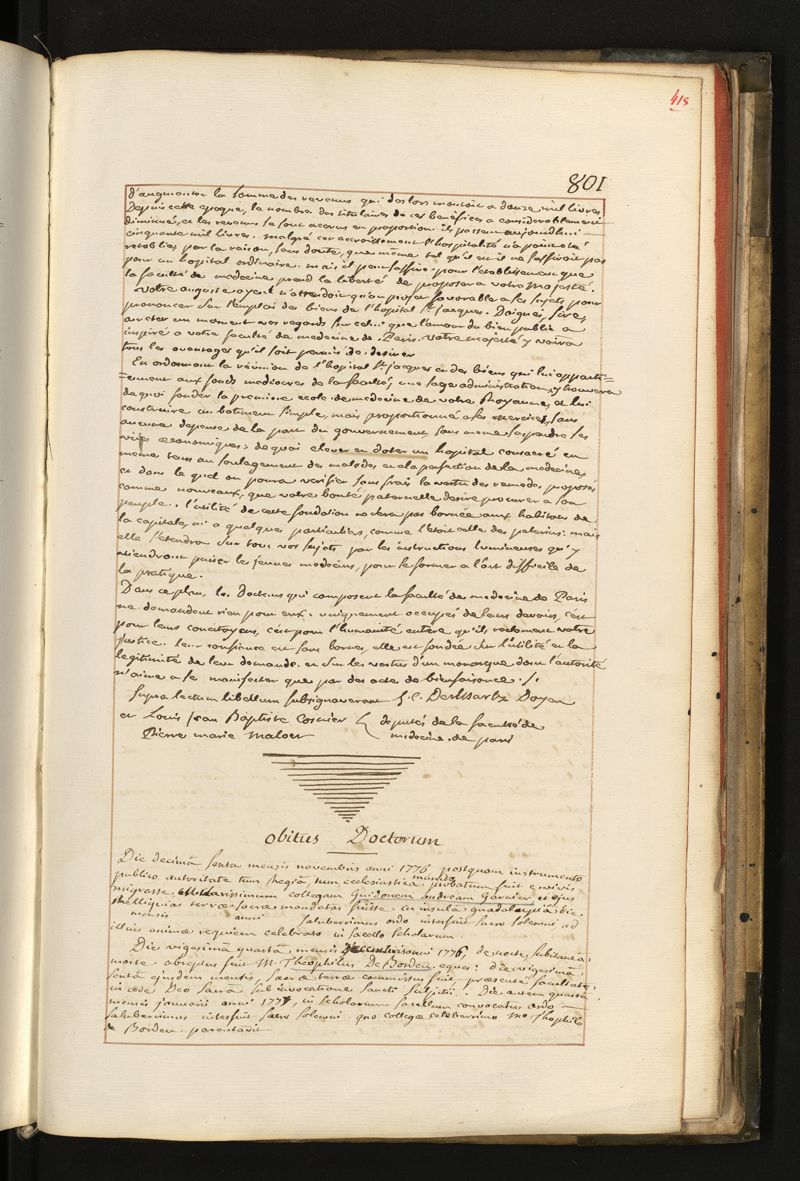 415
801
d'augmenter la somme des revenus qui des lors montoit a douze mil livres
Depuis cette epoque, le nombre des titulaires de ces benefices a considerablement
diminué, et les revenus se sont accrus en proportion. ils passent aujourdhui
cinquante mil livres. malgré cet accroissement l'hospitalité n'a point eté
retablie par la raison, sans doute, que même tel qu'il est il ne suffiroit pas
pour un hopital ordinaire. mais il peut suffire pour l'etablissement que
la faculté de medecine prend la liberté de proposer a votre majesté.
votre auguste ayeul n'attendoit qu'un projet favorable a ses sujets pour
prononcer sur l'emploi des biens de l'hopital St. Jacques. Daignés, sire,
arreter un moment vos regards sur celui que l'amour du bien public a
inspiré a votre faculté de medecine de Paris. votre majesté y verra
tous les avantages qu'il soit permis de desirer
En ordonnant la réunion de l'hopital St. Jacques et des biens qui lui apparti=
=ennent aux fonds mediocres de la faculté, une sage administration y trouvera
de quoi fonder la premiere ecole de medecine de votre Royaume, et lui
construire un batiment simple, mais proportionné a ses exercices, sans
aucune depense de la part du gouvernement, sans meme suspendre ses
vües œconomiques; de quoi elever et doter un hopital consacré en
même tems au soulagement des malades et a la perfection de la medecine
et dans le quel on poura verifier sans frais la vertu des remedes proposés
comme nouveaux, que votre bonté paternelle desire procurer a son
peuple. l'utilité de cette fondation ne sera pas bornée aux habitans de
la capitale, ni a quelque particuliers, comme l'etoit celle des pelerins; mais
elle s'etendra sur tous vos sujets par les instructions lumineuses qu'y
viendront puiser les jeunes medecins, pour se former a l'art difficile de
la pratique.
Dans ce plan, les Docteurs qui composent la faculté de medecine de Paris
ne demandent rien pour eux. uniquement occupés de leurs devoirs, c'est
pour leurs concitoyens, c'est pour l'humanité entiere qu'ils reclament votre
justice. leur confiance est sans bornes, elle est fondée sur l'utilité et la
legitimité de leur demande. et sur les vertus d'un monarque dont l'autorité
n'aime a se manifester que par des actes de bienfaisance.
Supra lectum libellum subsignaverunt J. C. DesEssartz Doyen
et Louis Jean Baptiste Cosnier députés de la faculté de
Pierre marie Maloet medecine de paris
obitus Doctorum
Die decimâ sextâ mensis novembris anni 1776, postquam instrumento
publico autoritate tum Regiâ, tum ecclesiasticâ munito probatum fuit e vivis
migrasse clarissimum collegam Guidonem andream Garnier et ejus
Relliquias terræ sacræ mandatas fuisse in insulâ guadalupiâ die
mensis anni saluberrimus ordo interfuit sacro solemni ad
illius animæ requiem celebrato in sacello scholarum.
Die vigesimâ quartâ mensis decembris anni 1776, de nocte, subitaneâ
morte abreptus fuit M. Théophilus De Bordeu eques; die vigesimâ
sextâ ejusdem mensis, sacræ terræ commissus fuit præsente facultate,
in æde Deo sacrâ sub invocatione Sancti Sulpitii. Die autem quartâ
mensis januarii anni 1777, in scholarum sacellum convocatus ordo
saluberrimus interfuit sacro solemni quo collegæ celeberrimo mo. theophilo
de Bordeu parentavit